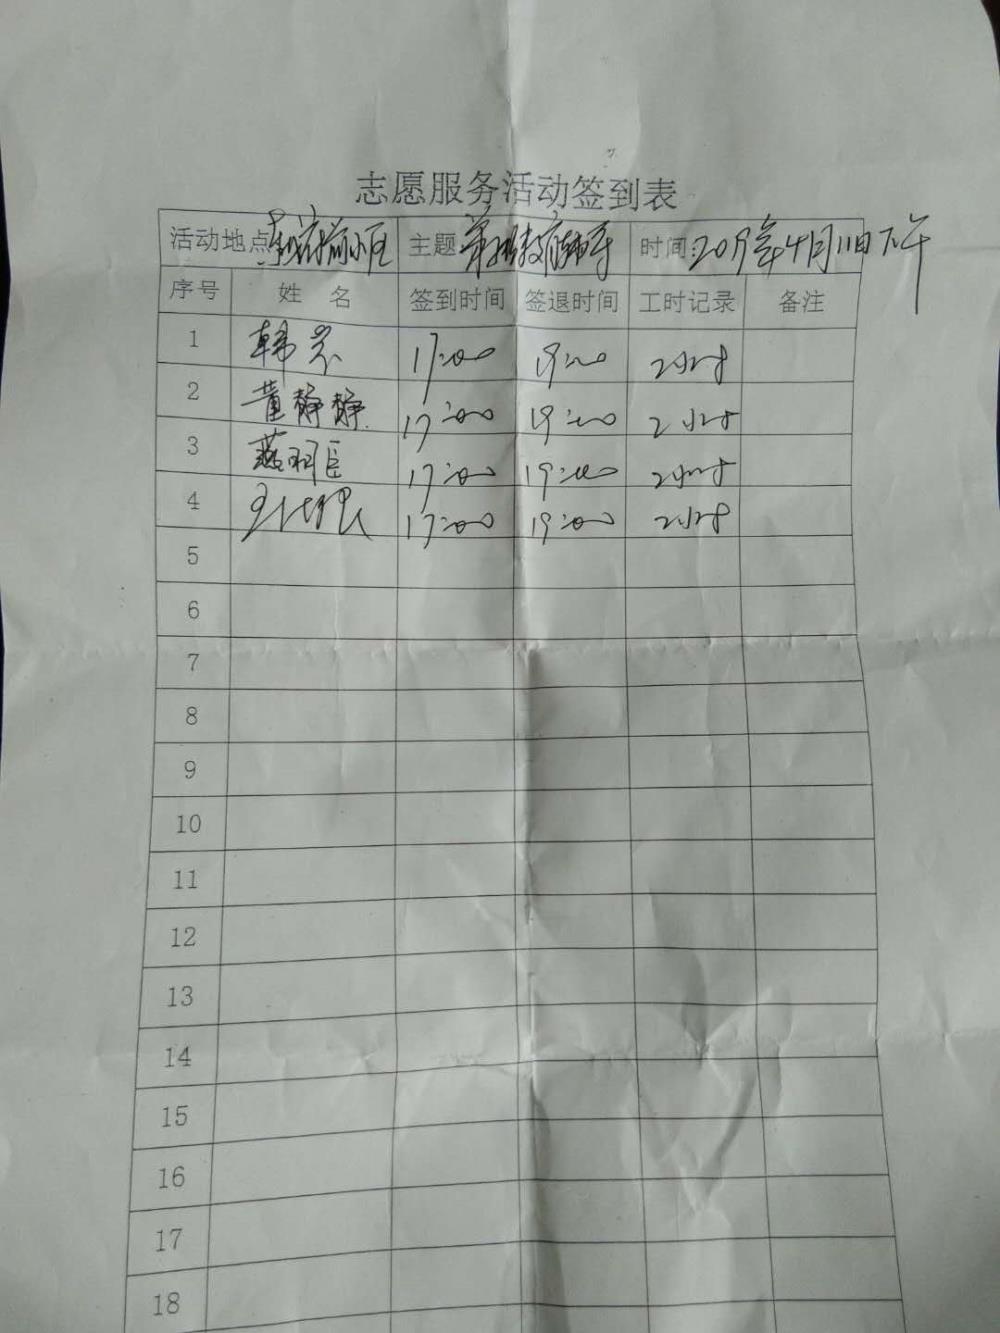 志愿服务活动签到表
活动地点 小区 主题 时间:2019年4月11日下午
序号 姓 名 签到时间 签退时间 工时记录 备注
1 韩 17:00 19:00 2小时
2 董静静 17:00 19:00 2小时
3 17:00 19:00 2小时
4 17:00 19:00 2小时
5
6
7
8
9
10
11
12
13
14
15
16
17
18